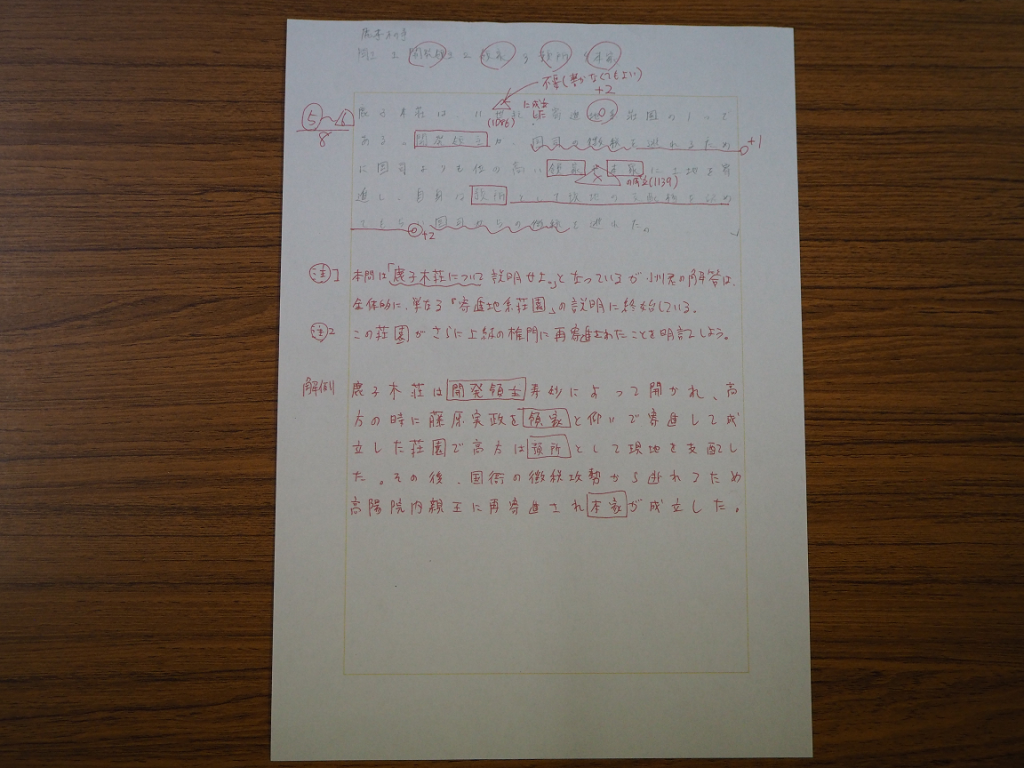 鹿子木荘
問1 1 開発領主 2 領家 3 預所 4 本家
不要(書かなくてもよい)
+2
鹿子木荘は11世紀に寄進地系荘園の1つで
に成立
(1086)
⑤〜6
8
ある。開発領主が、国司の徴税を逃れるため
+1
に国司よりも位の高い領家や本家に土地を寄
の成立(1139)
進し、自身は預所として現地の支配権を認め
てもらい国司からの徴税を逃れた。
+2
注1 本問は「鹿子木荘について説明せよ。」となっているが 小川君の解答は、
全体的に、単なる『寄進地系荘園』の説明に終始している。
注2 この荘園がさらに上級の権門に再寄進されたことを明記しよう。
解例 鹿子木荘は開発領主寿妙によって開かれ、高
方の時に藤原実政を領家と仰いで寄進して成
立した荘園で高方は預所として現地を支配し
た。その後、国衙の徴税攻勢から逃れるため
高陽院内親王に再寄進され本家が成立した。